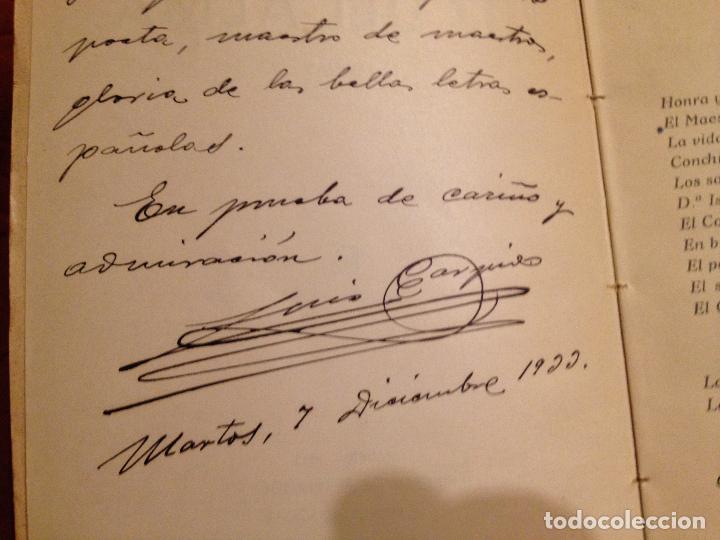 poeta, maestro de maestros,
gloria de las bellas letras es-
pañolas.
En prueba de cariño y
admiración.
Luis
Martos, 7 Diciembre 1933.
Honra y
El Maes
La vida
Conclu
Los so
D.ª Is
El Co
En b
El p
El s
El C
Lo
Lo
todocoleccion
todocoleccion.net